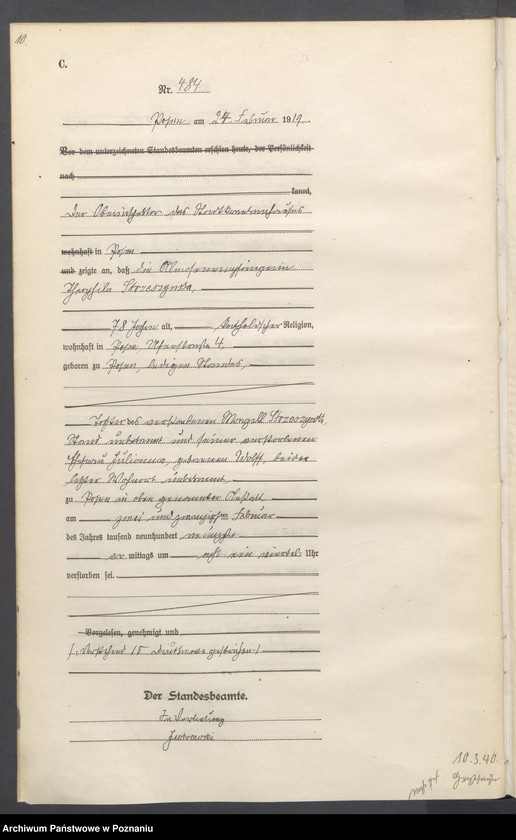 10.
C.
Nr. 484
Posen am 24. Februar 1919.
Vor dem unterzeichneten Standesbeamten erschien heute, der Persönlichkeit
nach
kannt,
Der Oberinspektor des Stadtkrankenhauses
wohnhaft in Posen
und zeigte an, daß die Almosenempfängerin
Theophila
78 Jahre alt, katholischer Religion,
wohnhaft in Posen, 4,
geboren zu Posen, ledigen Standes,
Tochter des verstorbenen
Stand unbekannt und seiner verstorbenen
Ehefrau Julianna, geborenen Wolff, beider
letzter Wohnort unbekannt,
zu Posen in oben genannter Anstalt
am zwei und zwanzigsten Februar
des Jahres tausend neunhundert neunzehn
vor mittags um acht ein viertel Uhr
verstorben sei.
Vorgelesen, genehmigt und
(Vorstehend 15 Druckworte gestrichen)
Der Standesbeamte.
In Vertretung
10.3.40
Archiwum Państwowe w Poznaniu